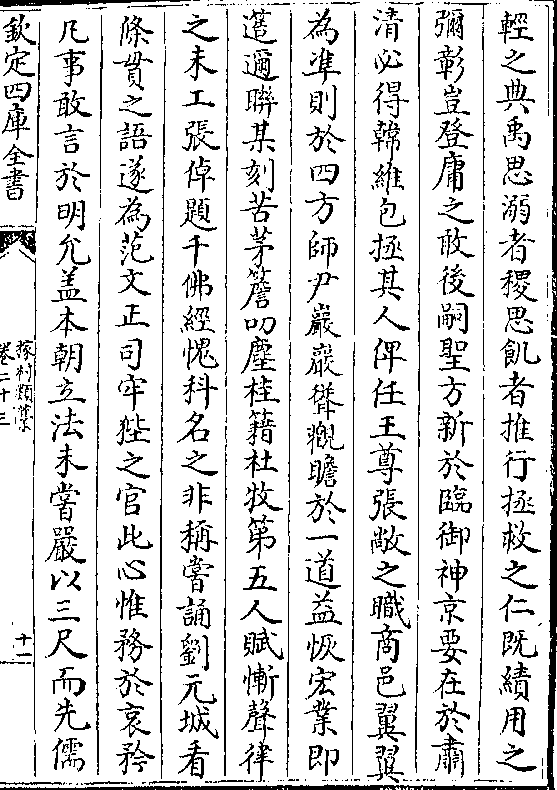 輕之典禹思溺者稷思飢者推行拯救之仁既績用之
彌彰豈登庸之敢後嗣聖方新於臨御神京要在於肅
清必得韓維包拯其人俾任王尊張敞之職商邑翼翼
為準則於四方師尹巖巖聳觀瞻於一道益恢宏業即
邇聯某刻苦茅簷叨塵桂籍杜牧第五人賦慚聲律
之未工張倬題千佛經愧科名之非稱嘗誦劉元城看
條貫之語遂為范文正司牢狴之官此心惟務於哀矜
凡事敢言於明允盖本朝立法未嘗嚴以三尺而先儒
欽定四庫全書
卷二十三
十一